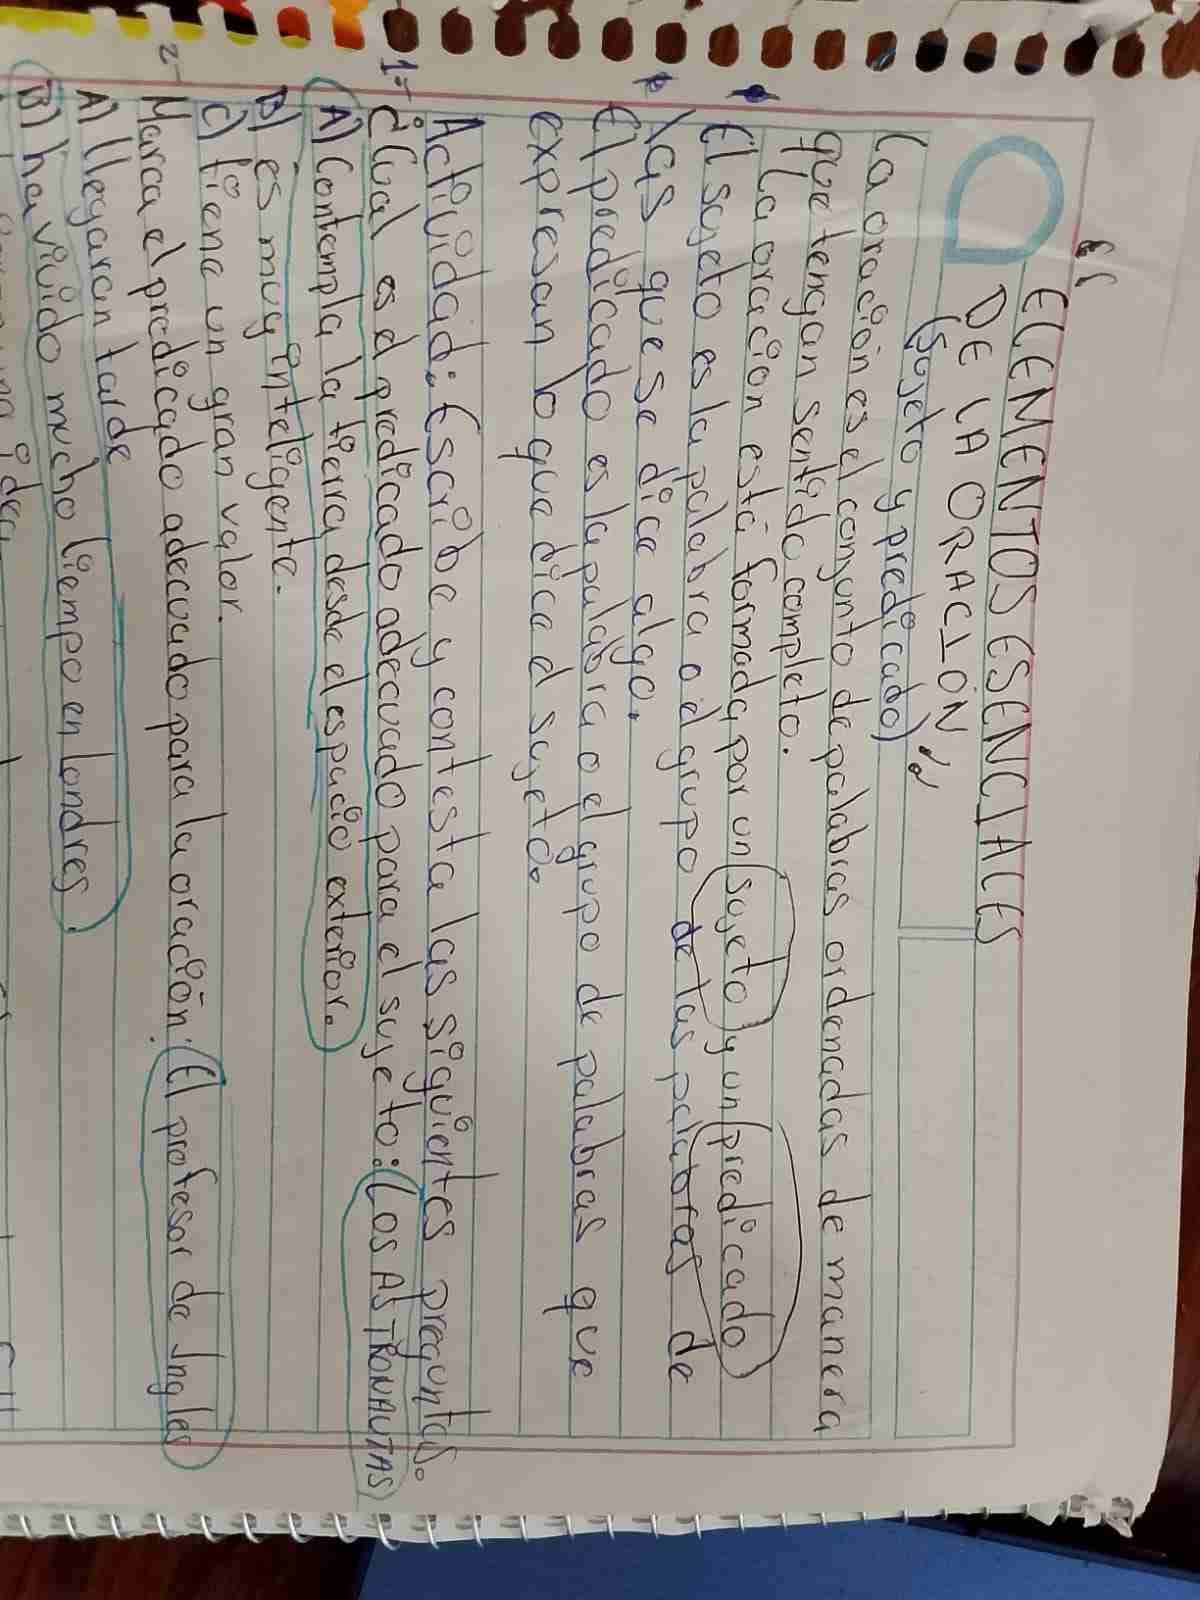 "ELEMENTOS ESENCIALES
DE LA ORACIÓN"
(Sujeto y predicado)
La oración es el conjunto de palabras ordenadas de manera
que tengan sentido completo.
La oración está formada por un sujeto y un predicado
El sujeto es la palabra o el grupo de las palabras de
las que se dice algo.
El predicado es la palabra o el grupo de palabras que
expresan lo que dice el sujeto.
Actividad: Escribe y contesta las siguientes preguntas.
1- ¿Cual es el predicado adecuado para el sujeto: LOS ASTRONAUTAS
A) Contempla la tierra desde el espacio exterior.
B) es muy inteligente.
C) tiene un gran valor.
2- Marca el predicado adecuado para la oración: El profesor de Ingles
A) llegaran tarde
B) ha vivido mucho tiempo en londres.